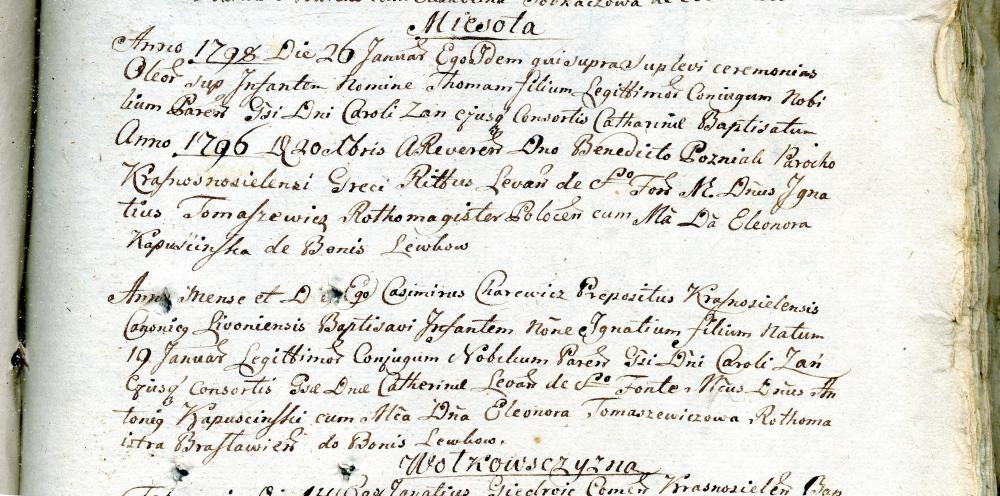 Miesota
Anno 1798 Die 26 Januar Ego Idem qui supra suplevi ceremonias
Oleor sup Infantem Nomine Thomam filium Legittimor Coniugum Nobi
lium Paren Gsi Dni Caroli Zan ejusq Consortis Catharinæ Baptisatum
Anno 1796 10bris A Reveren Dno Benedicto Pozniak Parocho
Krasnosnosielensi Greci Rittus Levan de S°. Fon M. Dnus Igna
tius Tomaszewicz Rothomagister Polocen cum Ma Da Eleonora
Kapuścinska de Bonis Lewkow
Anno Mense et D Ego Casimirus Charewicz Prepositus Krasnosielensis
Canonicq Livoniensis Baptisavi Infantem Nõne Ignatium filium Natum
19 Januar Legittimor Conjugum Nobilium Paren Gsi Dni Caroli Zan
Ejusq Consortis Gsæ Dnæ Catherinæ Levan de S°. Fonte Mcus Dnus An
toniq Kapuscinski cum Mca Dna Eleonora Tomaszewiczowa Rothoma
istra Brasławien do Bonis Lewkow.
Wołkowsczyzna
Ignatius Giedroic Comen Krasnosielen Bap